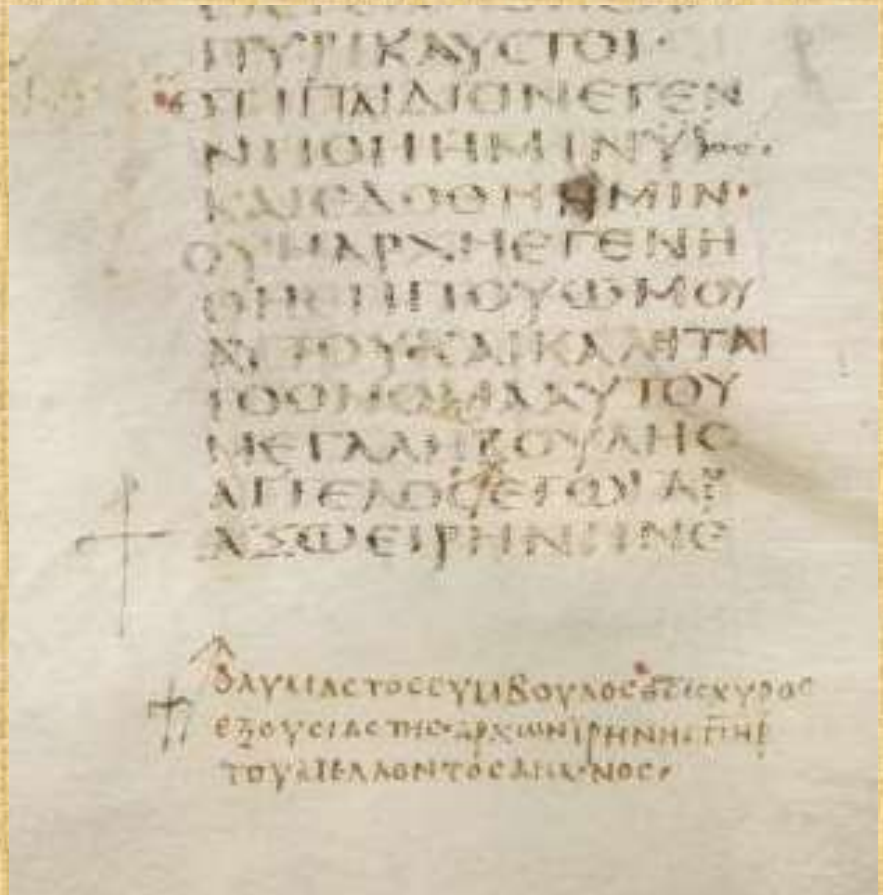 ΠΥΡΙΚΑΥϹΤΟΙ·
ΟΤΙΠΑΙΔΙΟΝΕΓΕΝ
ΝΗΘΗΗΜΙΝΥΙος·
ΚΑΙΕΔΟΘΗΗΜΙΝ·
ΟΥΗΑΡΧΗΕΓΕΝΗ
ΘΗΕΠΙΤΟΥΩΜΟΥ
ΑΥΤΟΥΚΑΙΚΑΛΕΙΤΑΙ
ΤΟΟΝΟΜΑΑΥΤΟΥ
ΜΕΓΑΛΗϹΒΟΥΛΗϹ
ΑΓΓΕΛΟϹΕΓΩΓΑΡ
ΑΞΩΕΙΡΗΝΗΝΕ
ΘΑΥΜΑϹΤΟϹϹΥΜΒΟΥΛΟϹΘϹΙϹΧΥΡΟϹ
ΕΞΟΥϹΙΑϹΤΗϹ·ΑΡΧΩΝΙΡΗΝΗϹΠΗΡ
ΤΟΥΜΕΛΛΟΝΤΟϹΑΙΩΝΟϹ·